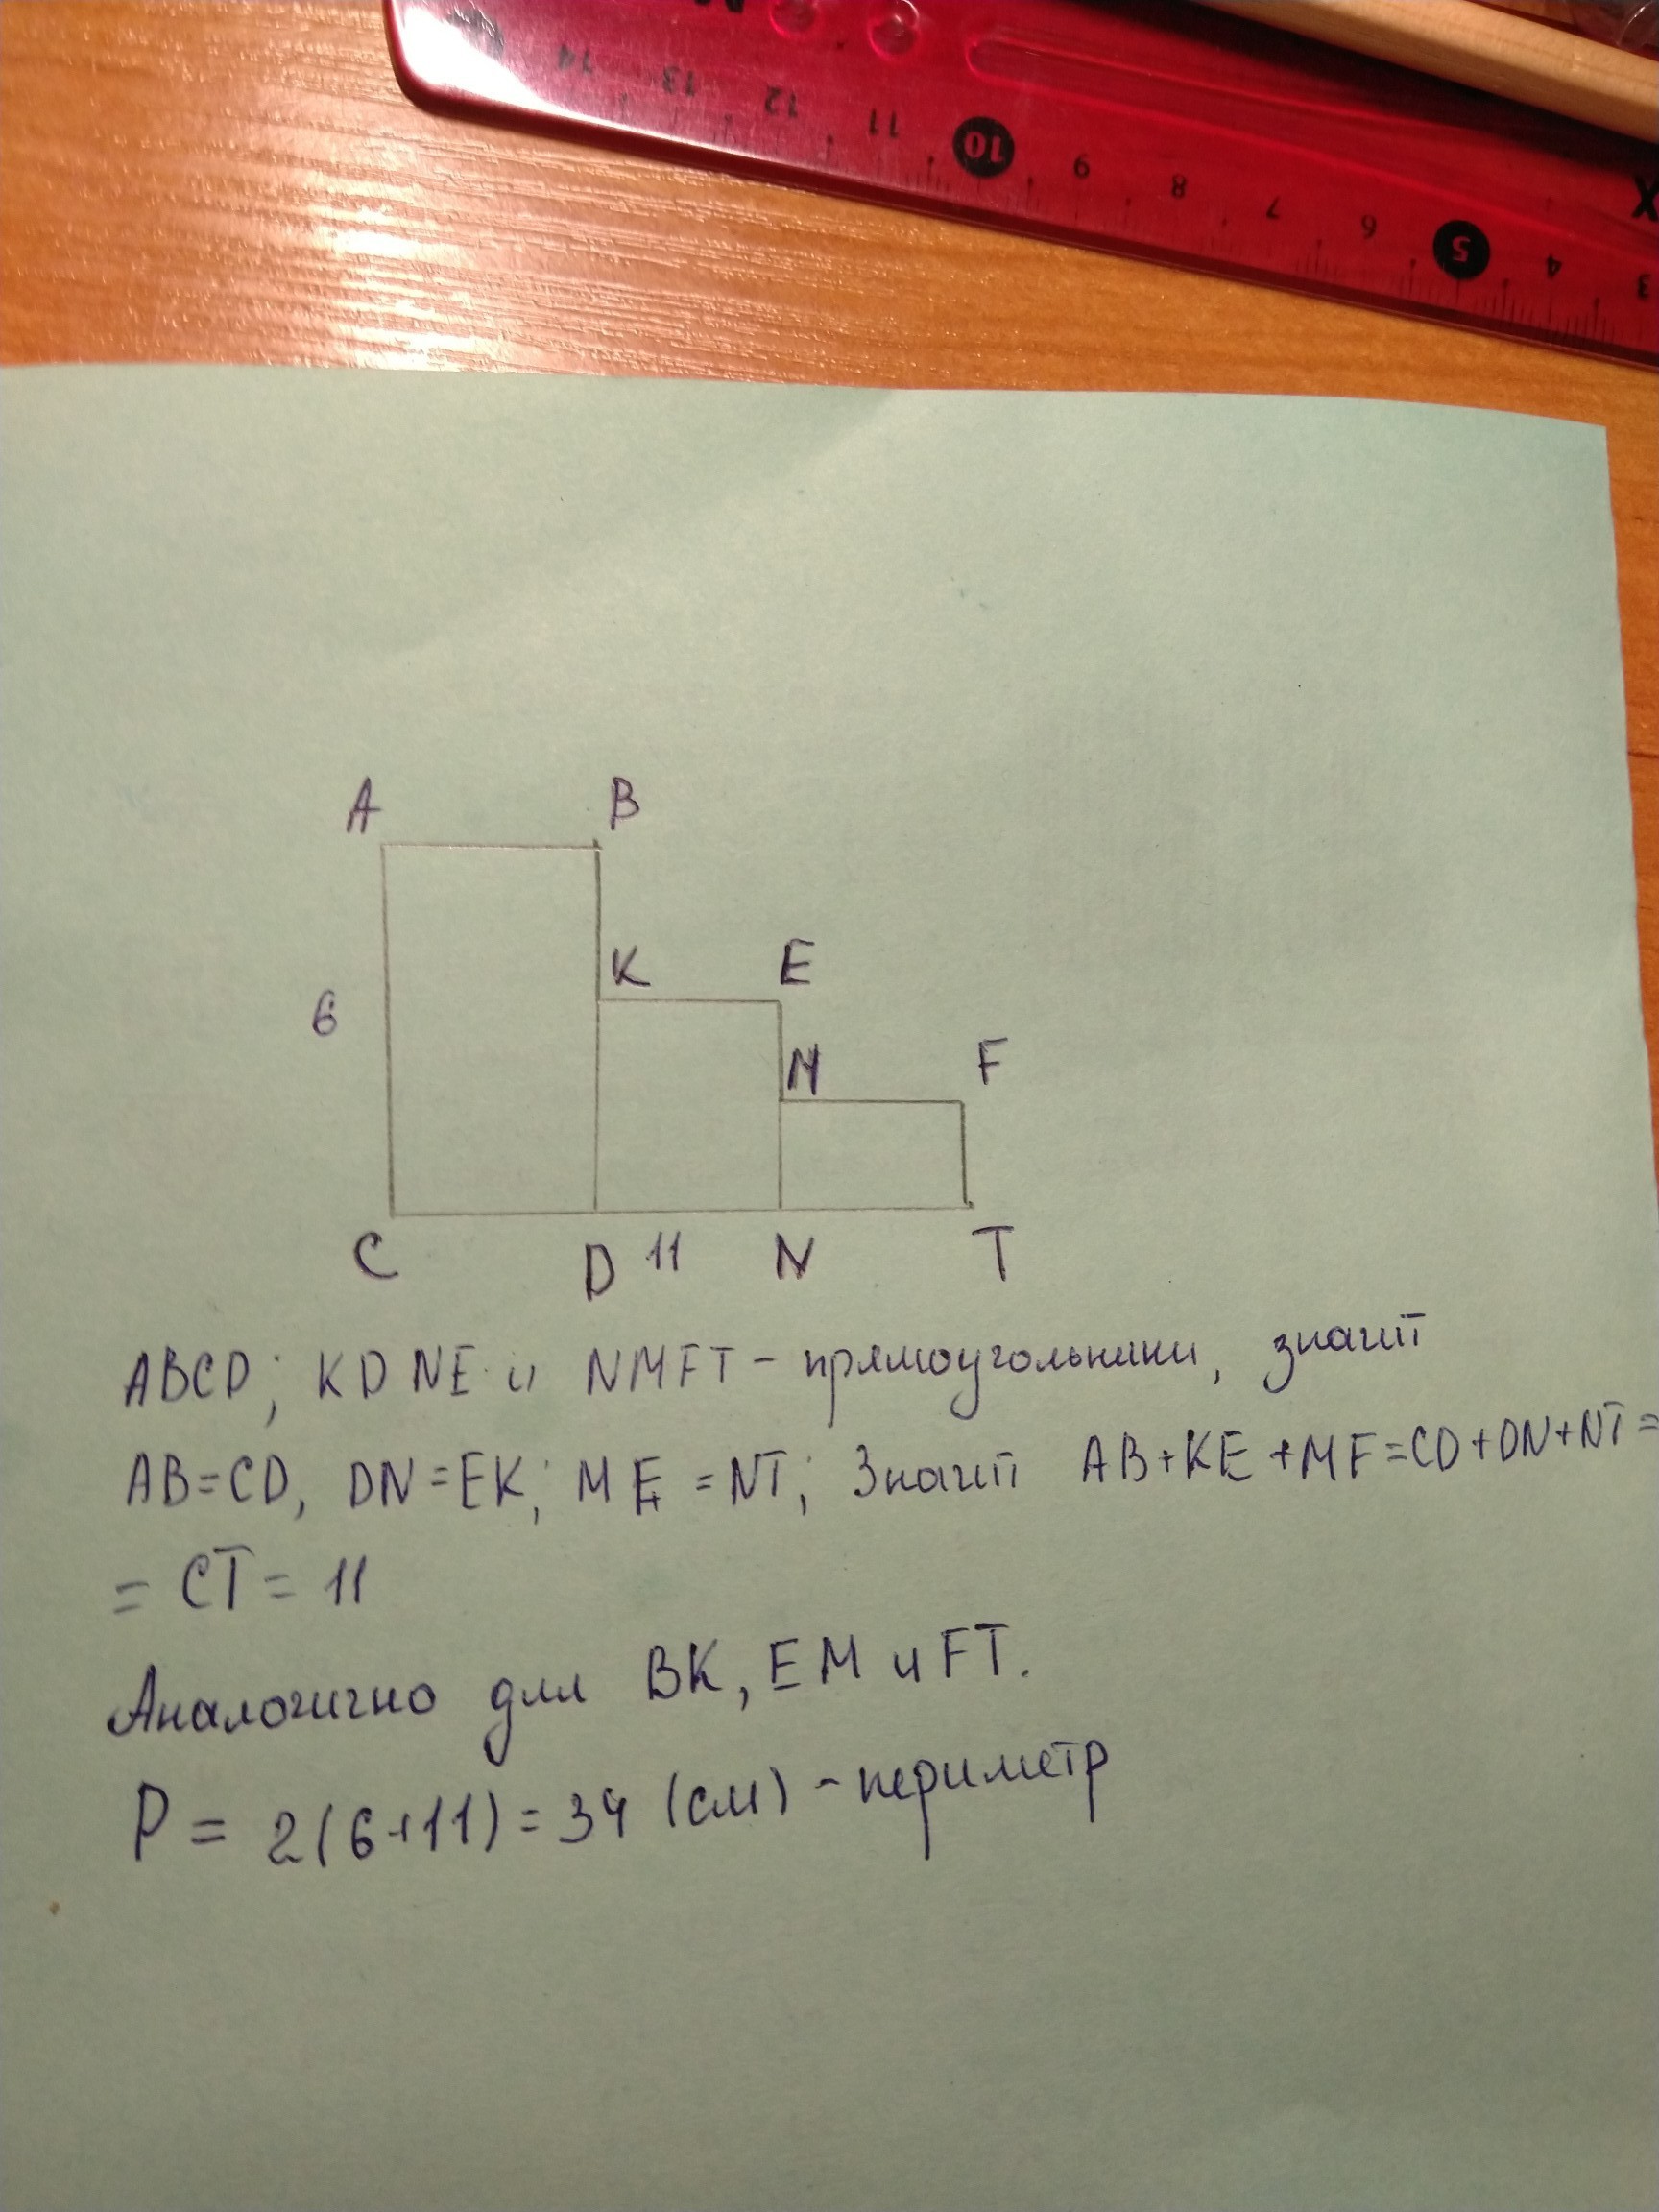 14 13 12 11 10 9 8 7 6 5 4 3
A B
K E
6
M F
C D 11 N T
ABCD; KDNE и NMFT - прямоугольники, значит
AB=CD, DN=EK; MF=NT; Значит AB+KE+MF=CD+DN+NT=
= CT = 11
Аналогично для BK, EM и FT.
P = 2(6+11)=34 (см) - периметр